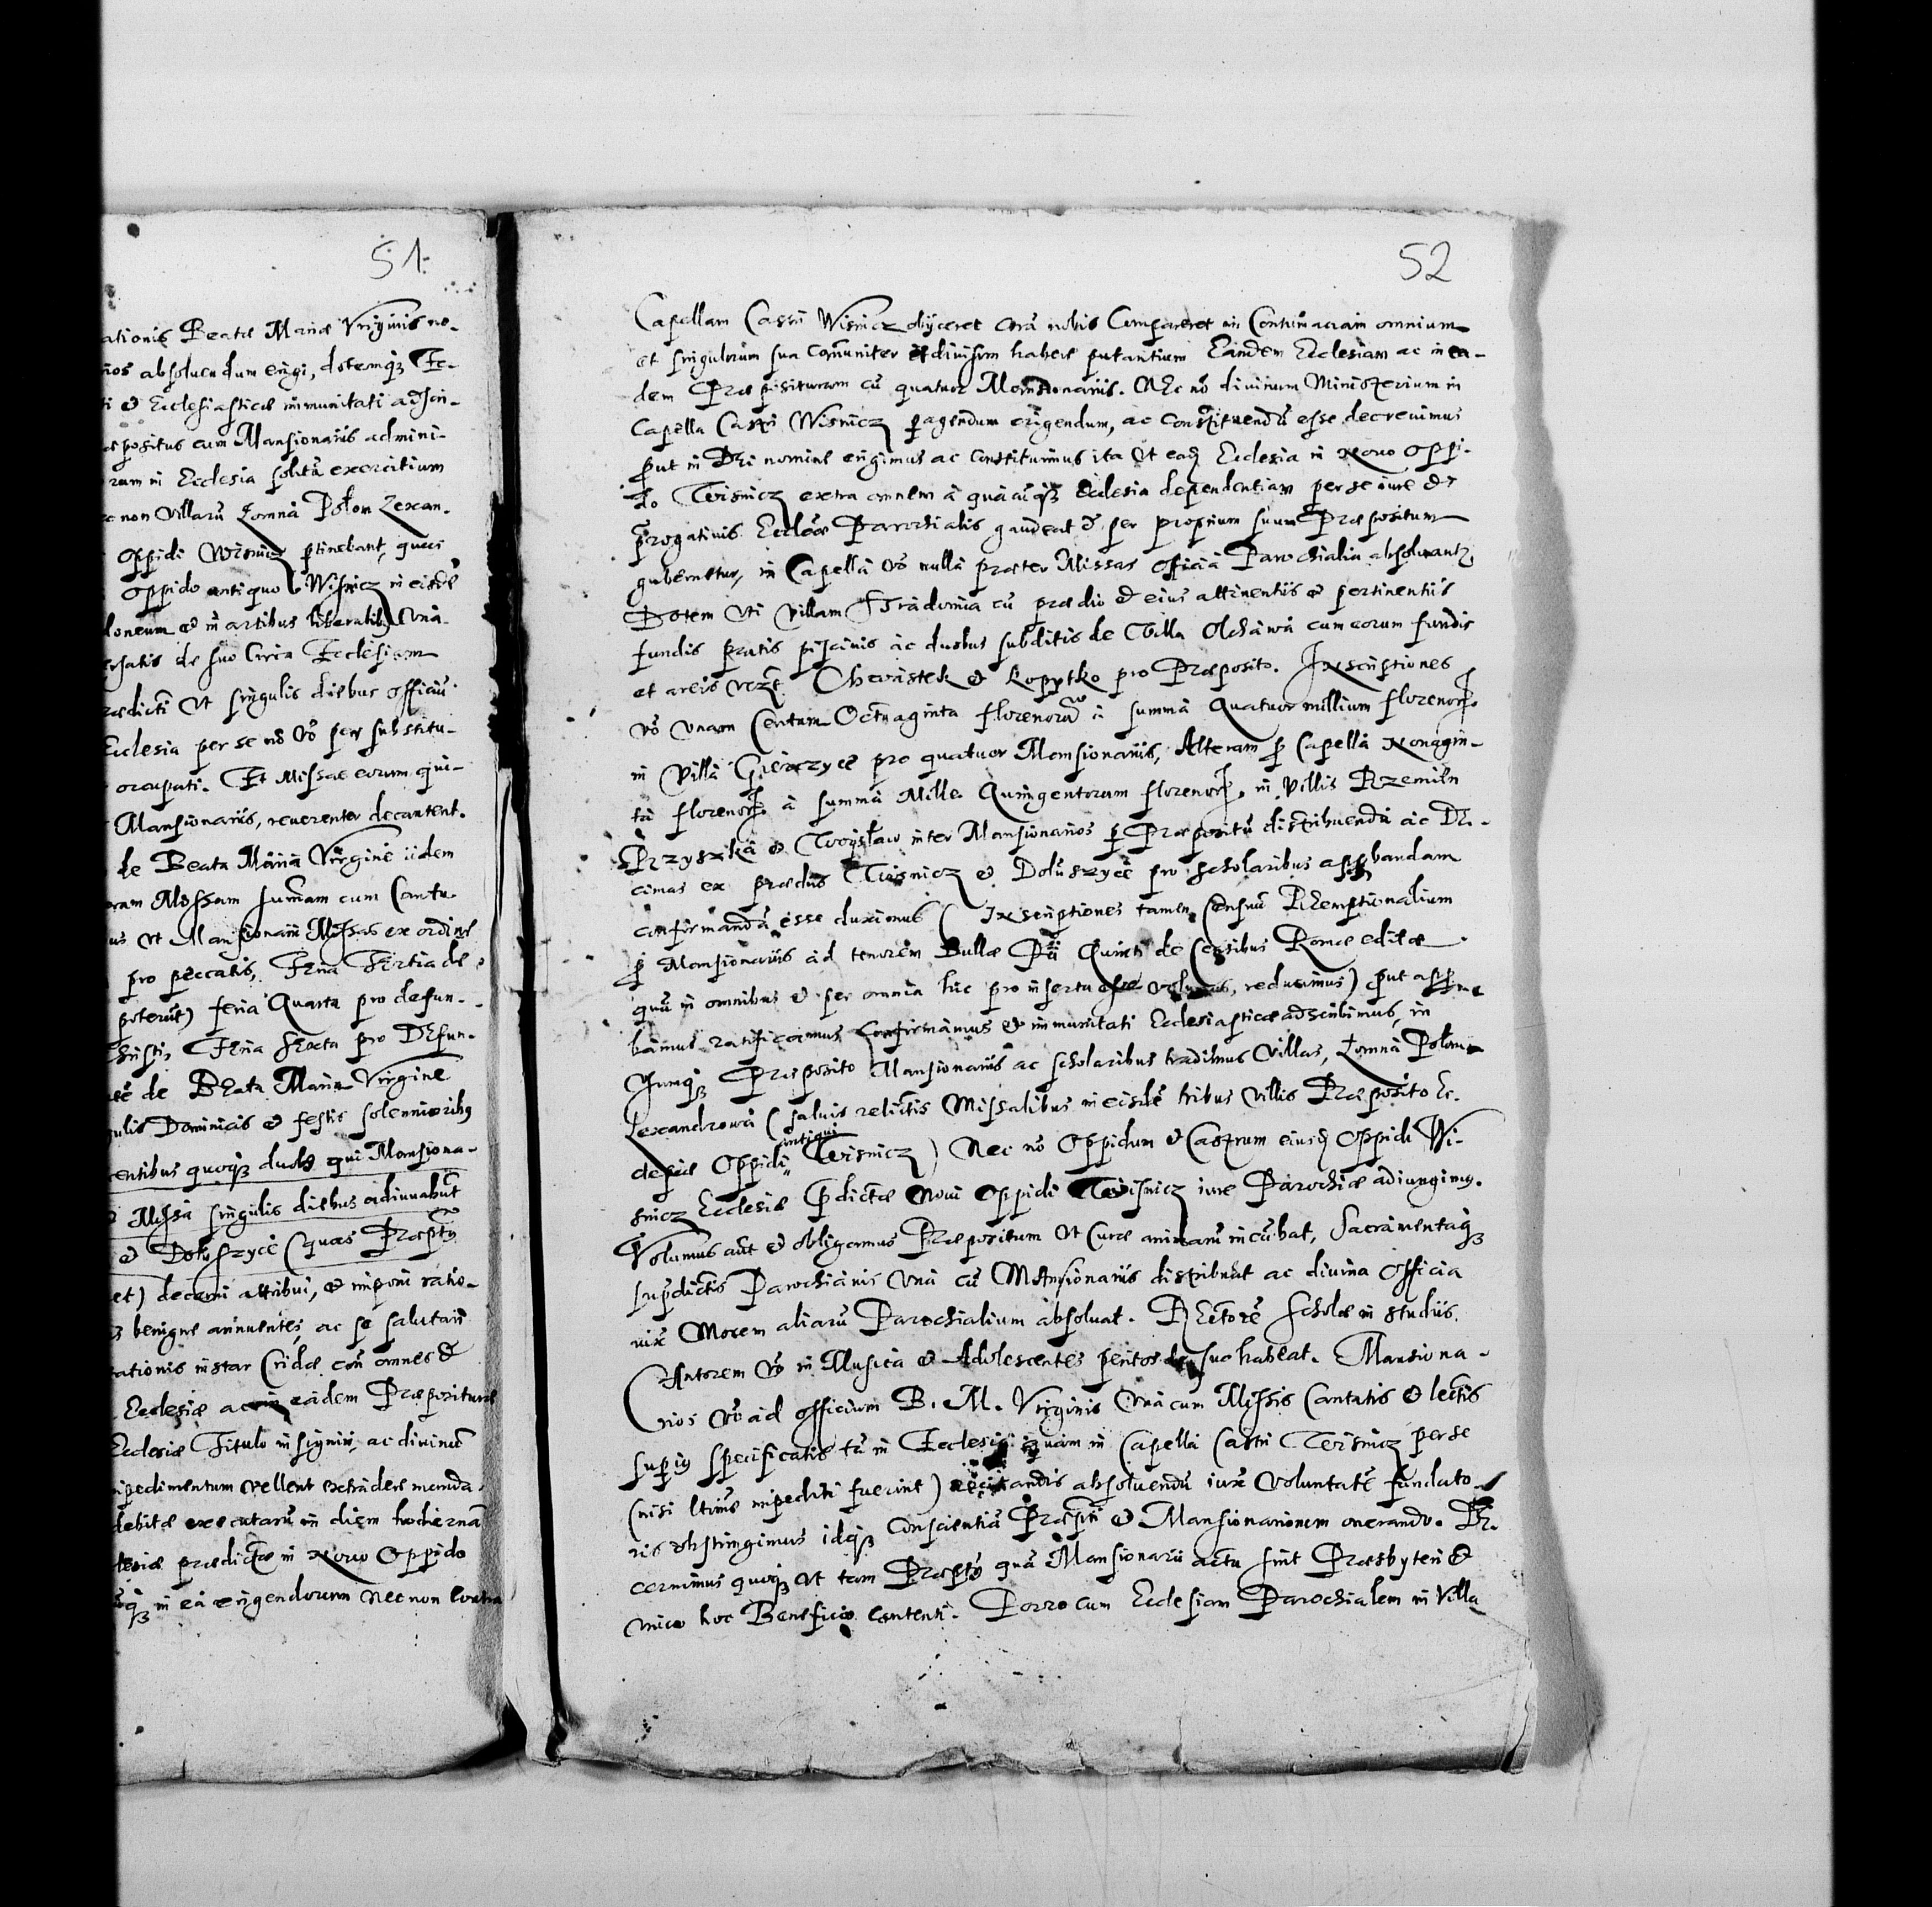 51.
ationis Beatæ Mariæ Virginis no-
rios absoluendum erigi, dotemqȝ Ec-
ti et Ecclesiasticæ immunitati adscri-
æpositus cum Mansionarijs admini-
rum in Ecclesia solitū exercitium
ec non villarū Łomna Połom Lexan-
oppidi Wisnicz ptinebant, quas
oppido antiquo Wisnicz in eisdē
doneum et in artibus liberalibȝ Vna
ersatis de suo Circa Ecclesiam
rædicti Vt singulis diebus officiū
Ecclesia per se nō vō per substitu-
occupati. Et Missæ eorum qui-
Mansionarijs, reuerenter decantent.
de Beata Maria Virgine iidem
oram Missam summam cum Cantu
us Vt Mansionarij Missas ex ordine
pro peccatis, Feria Tertia de
poterūt) feria Quarta pro defun-
Christi, Feria sexta pro Defun-
de Beata Maria Virgine
gulis Dominicis et festis solennioribȝ
centibus quoqȝ duobȝ qui Mansiona-
Missa singulis diebus adiuuabūt
et Dołuszyce (quas Præptȝ
et) decerni attribui, et imponi ratio-
benigne annuentes, ac se salutari
rationis instar Cridæ coñ omnes et
Ecclesiæ ac in eadem Præpositure
Ecclesiæ Titulo insigniri, ac diuinū
impedimentum vellent extradere manda
debitæ executarū in diem hodiernā
lesiæ prædictæ in Nouo Oppido
qȝ in ea erigendorum nec non contra
52
Capellam Castri Wisnicz obijceret corā nobis Compareret in Contumaciam omnium
et singulorum sua comuniter et diuisim habere putantium Eandem Ecclesiam ac in ea-
dem Præposituram cū quatuor Mansionarijs. Nec nō diuinum Ministerium in
Capella Castri Wisnicz pagendum erigendum, ac constituendū esse decreuimus
put in Dei nomine erigimus ac constituimus ita Vt eadȝ Ecclesia in Nouo Oppi-
do Wisnicz extra omnem à quacūqȝ Ecclesia dependentiam per se iure et
progatiuis Ecclesiæ Parochialis gaudeat et per proprium suum Præpositum
gubernetur, in Capella vō nulla præter Missas officia Parochialia absoluantȝ
Dotem Vti villam Stradomia cū prædio et eius attinentijs et pertinentijs
fundis pratis piscinis ac duobus subditis de Villa Olchawa cum eorum fundis
et areis vezt Chwastek et Łopytko pro Præposito. Inscriptiones
vō Vnam Centum Octuaginta florenorū à summa Quatuor millium florenor.
in Villa Gierczyce pro quatuor Mansionarijs, Alteram p Capella Nonagin-
ta florenor. à summa Mille Quingentorum florenor. in villis Rzemień
Rzyszka et Woysław inter Mansionarios p Præpositū distribuenda ac De-
cimas ex prædijs Wisnicz et Dołuszyce pro scholaribus appbandam
confirmandā esse duximus (Inscriptiones tamen Censuū Reemptionalium
p Mansionarijs ad tenorem Bullæ Pij Quinti de Censibus Romæ editæ
quā in omnibus et per omnia hic pro inserta esse volumus, reducimus) put appro
bamus ratificamus confirmamus et immunitati Ecclesiasticæ adscribimus, in
Præposito Mansionarijs ac scholaribus tradimus Villas, Łomna Połom
Lexandrowa (saluis relictis Missalibus in eisdē tribus villis Præposito Ec-
clesiæ Oppidi antiqui Wisnicz) Nec nō Oppidum et Castrum eiusdȝ Oppidi Wi-
snicz Ecclesiæ pdictæ Noui Oppidi Wisnicz iure Parochiæ adiungimȝ.
Volumus aūt et obligamus Præpositum Vt Curæ animarū incūbat, Sacramentaqȝ
supdictis Parochianis Vna cū Mansionarijs distribuat ac diuina officia
iux Morem aliarū Parochialium absoluat. Rectorē Scholæ in studijs
Cantorem vō in Musica et Adolescentes peritos de suo habeat. Mansiona-
rios vō ad officium B. M. Virginis Vna cum Missis Cantatis et lectis
supiȝ specificatis tā in Ecclesia quam in Capella Castri Wisnicz per se
(nisi ltime impediti fuerint) recitandis absoluendū iux Voluntatē fundato
ris obstringimus idqȝ Conscientiā Præpti et Mansionariorum onerando. De-
cernimus quoqȝ Vt tam Præptȝ quā Mansionarij actu sint Præsbyteri et
Vnico hoc Beneficio contenti. Porro cum Ecclesiam Parochialem in Villa